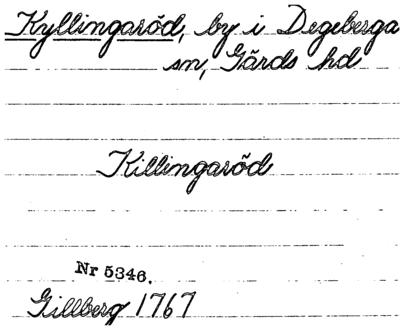 Kyllingaröd, by i Degeberga
sn, Gärds hd
Killingaröd
Nr 5346.
Gillberg 1767